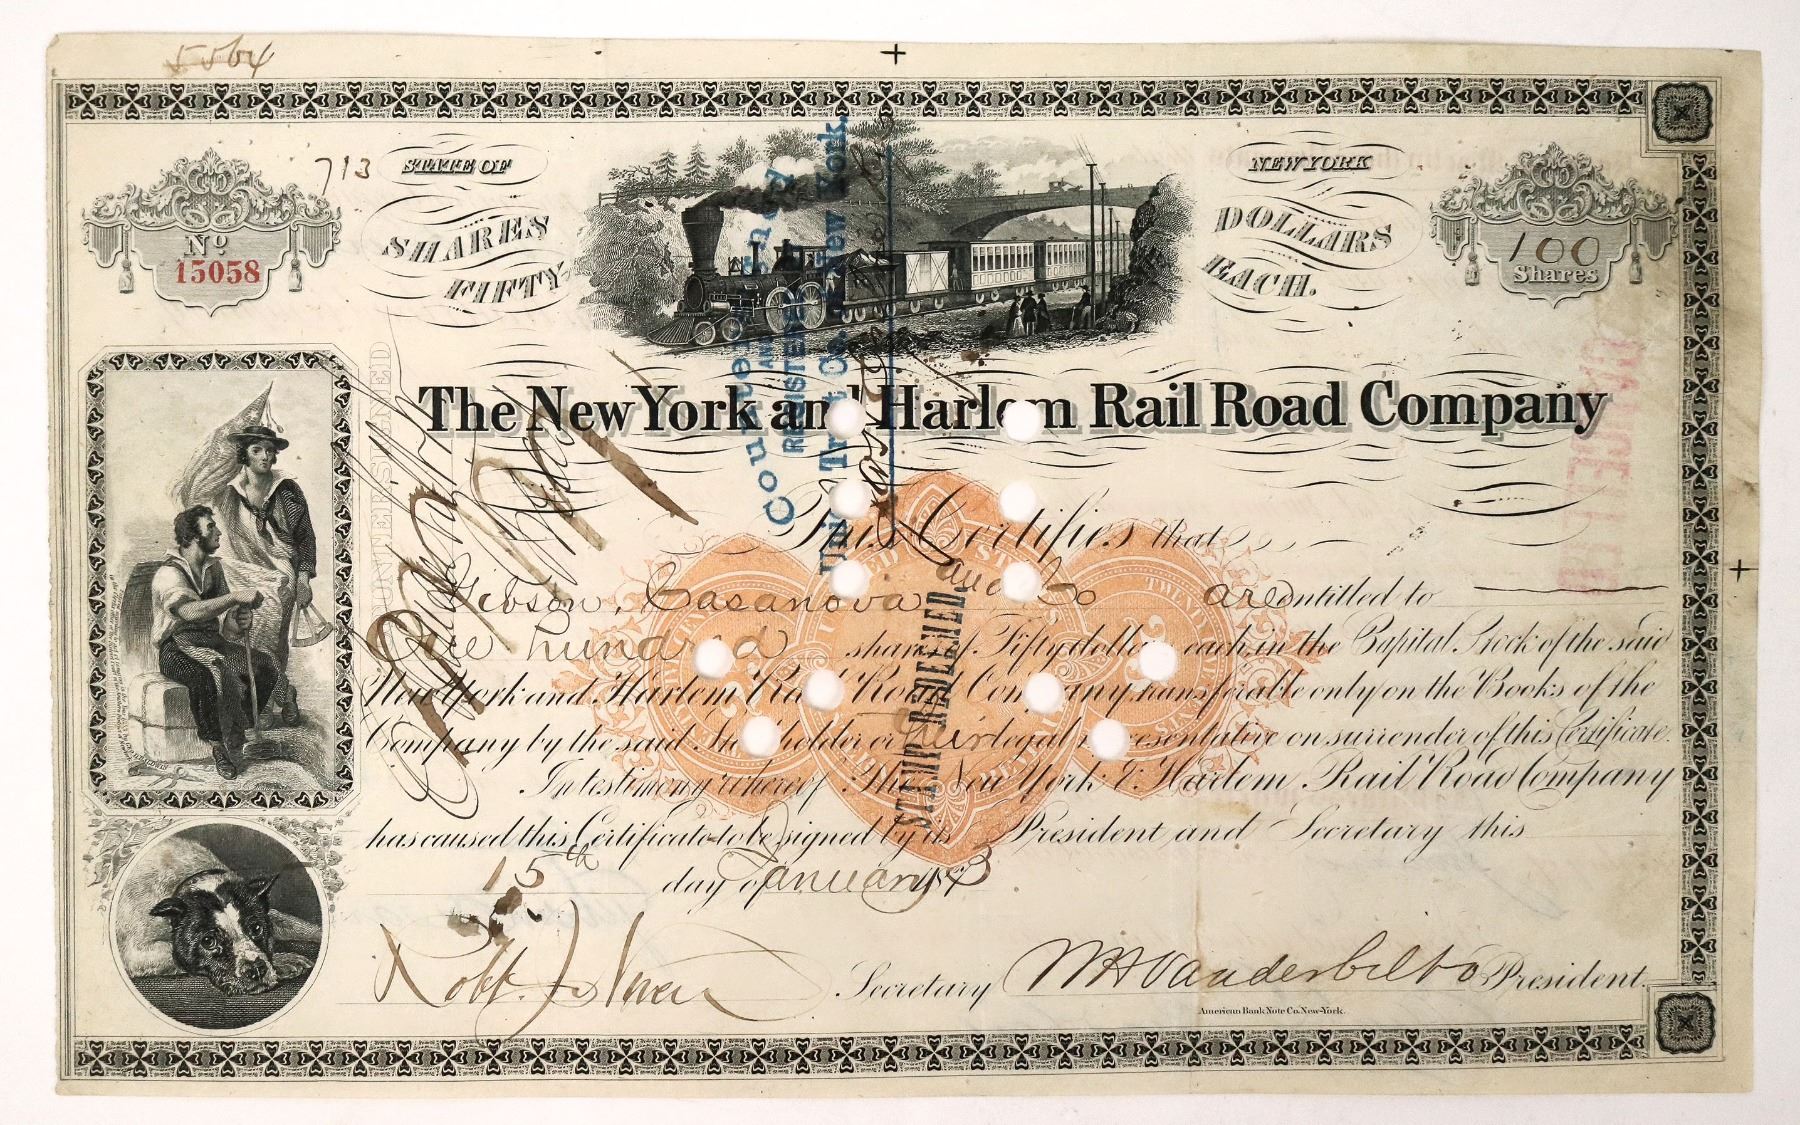 5564
713
STATE OF
NEW YORK
No.
15058
SHARES
FIFTY
DOLLARS
EACH.
100
Shares
COUNTERSIGNED
Countersigned
AND
REGISTERED
Union Trust Co. New York.
CANCELLED
The New York and Harlem Rail Road Company
This Certifies that
Gibson, Casanova and Co are entitled to
One hundred shares of Fifty dollars each in the Capital Stock of the said
New York and Harlem Rail Road Company transferable only on the Books of the
Company by the said Stockholder or their legal representative on surrender of this Certificate.
In testimony whereof The New York & Harlem Rail Road Company
has caused this Certificate to be signed by its President and Secretary this
15th day of January 1873
STAMP REDEEMED
UNITED STATES
TWENTY
25
25
Secretary
W H Vanderbilt
President.
American Bank Note Co. New-York.